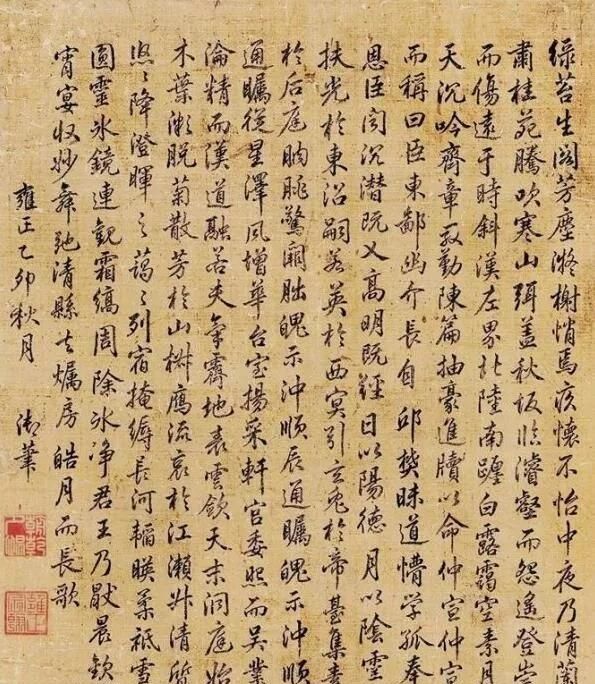 綠苔生閣芳塵凝榭悄焉疚懷不怡中夜乃清蘭
肅桂苑騰吹寒山弭蓋秋坂臨濬壑而怨遙登崇
而傷遠于時斜漢左界北陸南躔白露靄空素月
天沉吟齊章殷勤陳篇抽豪進牘以命仲宣仲宣
而稱曰臣東鄙幽介長自邱樊昧道懵學孤奉
恩臣聞沉潛既义高明既經日以陽德月以陰靈
扶光於東沼嗣若英於西冥引玄兔於帝臺集素
於后庭朒朓驚闕朏魄示沖順辰通矚魄示沖順
通矚從星澤風增華台室揚采軒宮委照而吳業
淪精而漢道融若夫氣霽地表雲斂天末洞庭始
木葉漸脫菊散芳於山椒鴈流哀於江瀨升清質
悠〻降澄暉之藹〻列宿掩縟長河韜暎柔祇雪
圓靈冰鏡連觀霜縞周除冰净君王乃厭晨歡
宵宴收妙舞弛清縣去燭房皓月而長歌
雍正乙卯秋月 御筆